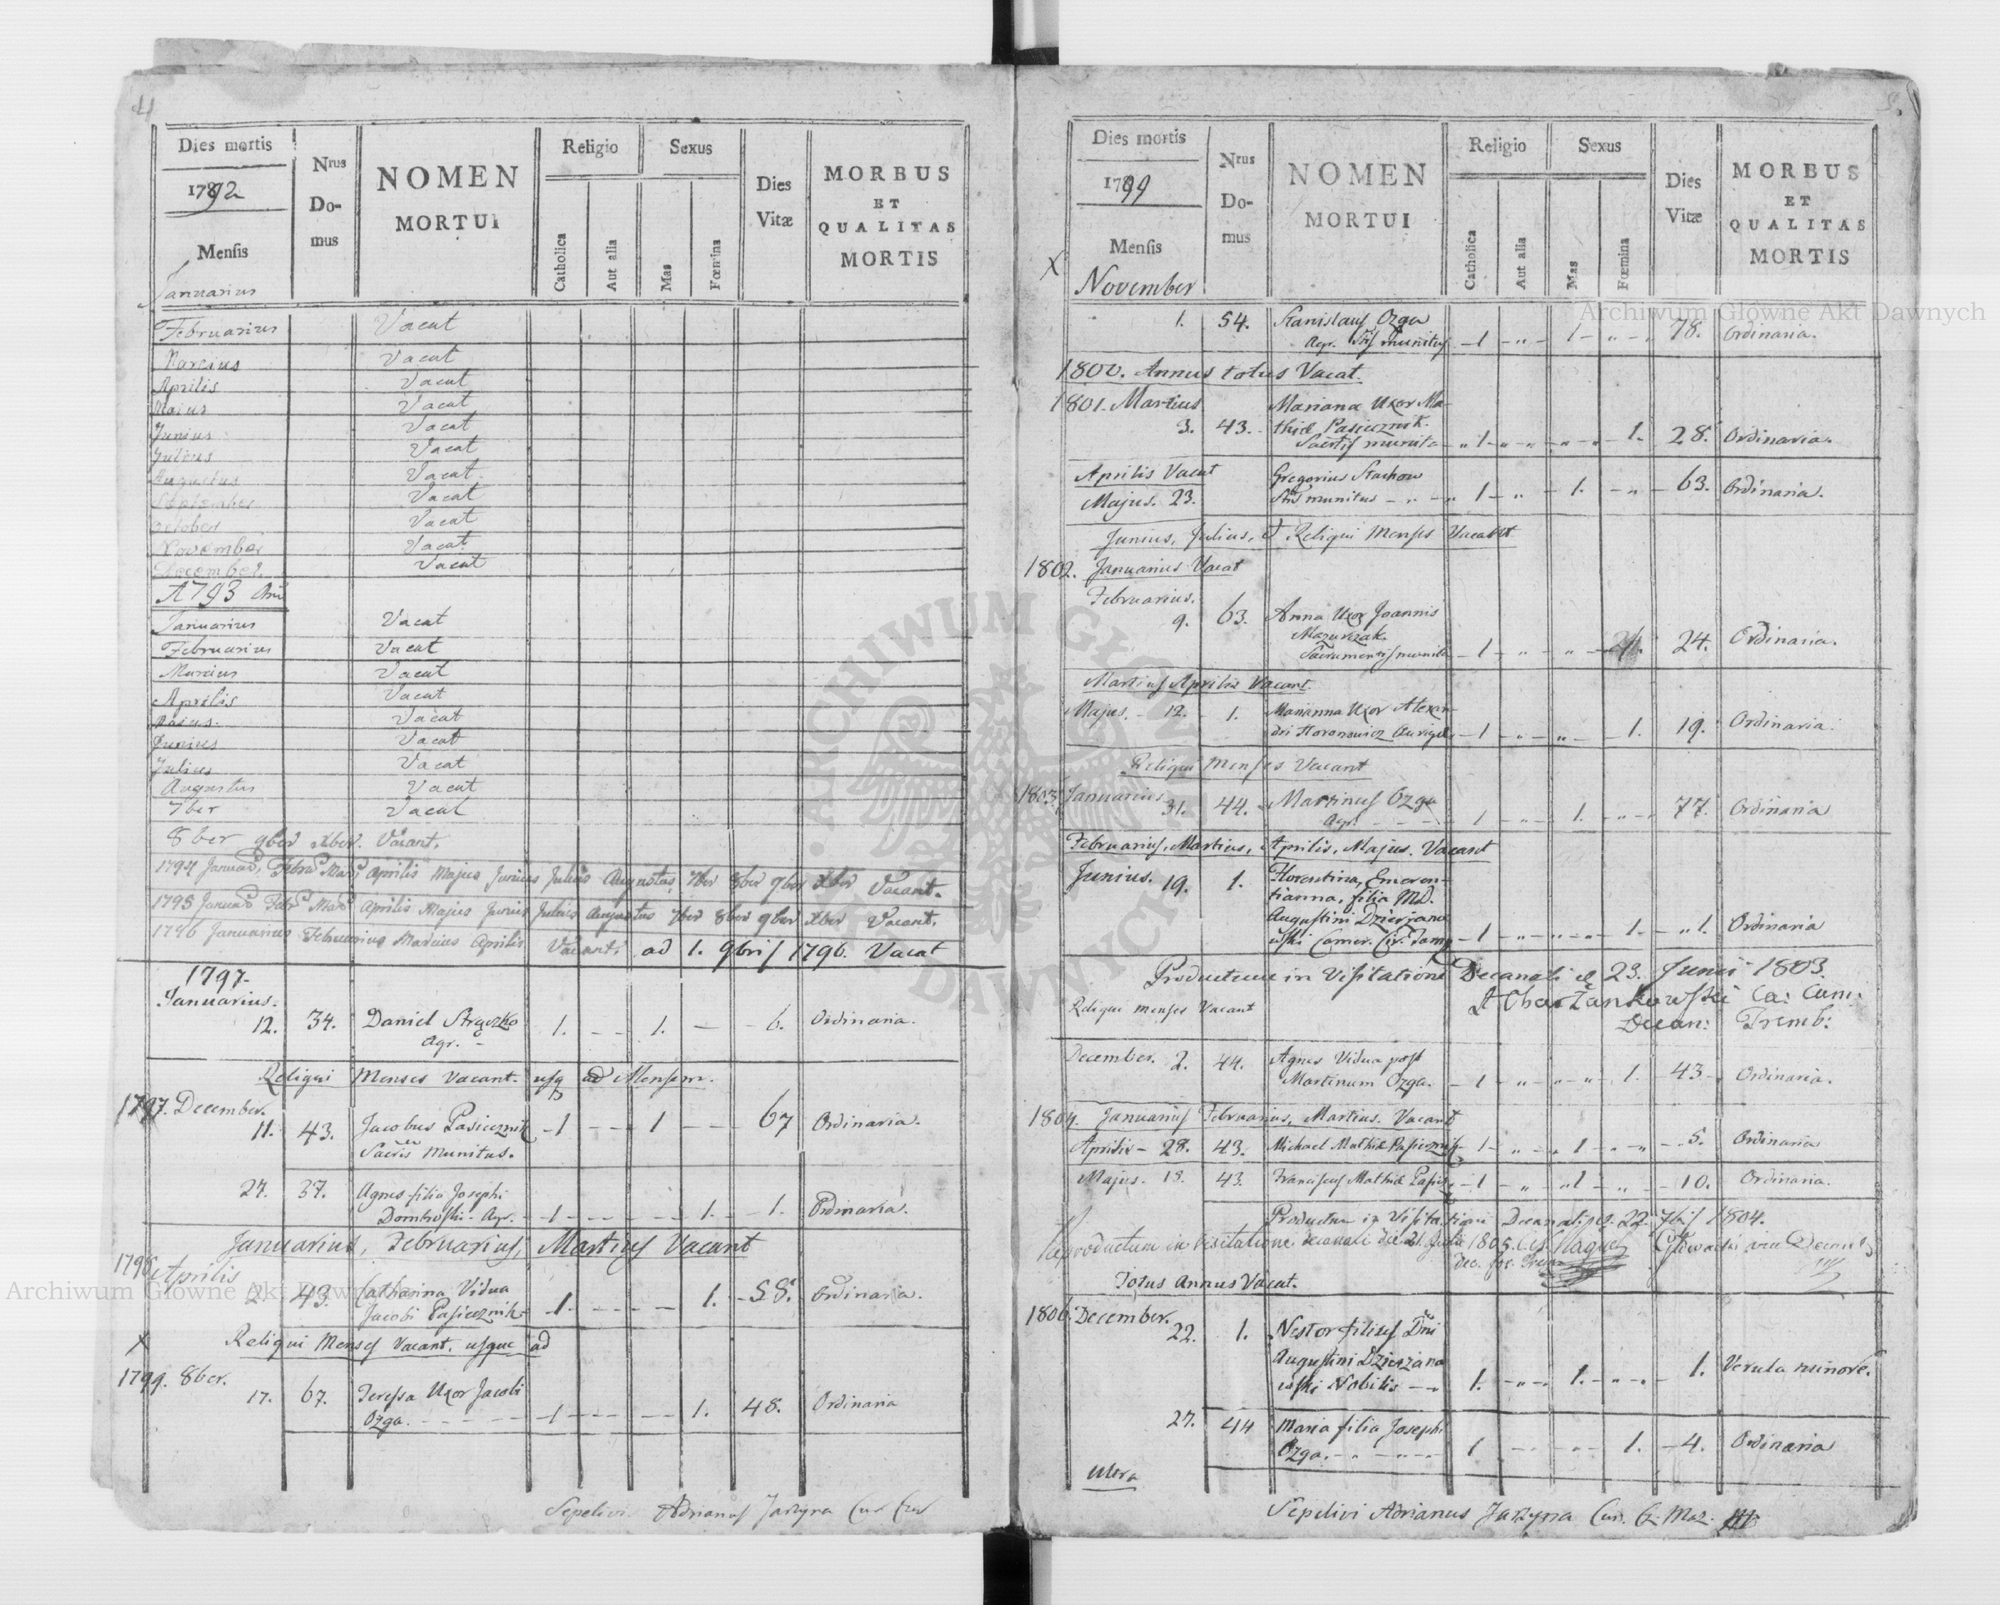 4
Dies mortis
1792
Mensis
Januarius
Nrus
Do-
mus
NOMEN
MORTUI
Religio
Catholica
Aut alia
Sexus
Mas
Fœmina
Dies
Vitæ
MORBUS
ET
QUALITAS
MORTIS
Februarius Vacat
Marcius Vacat
Aprilis Vacat
Maius Vacat
Junius Vacat
Julius Vacat
Augustus Vacat
September Vacat
October Vacat
November Vacat
December Vacat
1793
Januarius Vacat
Februarius Vacat
Marcius Vacat
Aprilis Vacat
Maius Vacat
Junius Vacat
Julius Vacat
Augustus Vacat
7ber Vacat
8ber 9ber Xber Vacant.
1794 Aprilis Majus Junius Julius Augustus 7ber 8ber 9ber Xber Vacant.
1795 Aprilis Majus Junius Julius Augustus 7ber 8ber 9ber Xber Vacant.
1796 Januarius Februarius Marcius Aprilis Vacant ad 1. 9bris 1796. Vacat
1797.
Januarius.
12. 34. Daniel Strączko 1. - - 1. — - 6. Ordinaria.
Agr. -
Religui Menses Vacant. usq ad Mensem.
1797. December.
11. 43. Jacobus Pasicznik - 1 - - 1 - - 67 Ordinaria.
Sacris Munitus.
27. 37. Agnes filia Josephi
Dombroski - Agr. - 1 - - - - 1. - 1. Ordinaria.
Januarius, Februarius, Martius Vacant
1798 Aprilis
2. 43. Catharina Vidua
Jacobi Pasicznik - 1 - - - - 1. - 58. Ordinaria.
X Religui Menses Vacant. usque ad
1799. 8ber.
17. 67. Teressa Uxor Jacobi
Ozga. - - - - 1 - - - - 1. 48. Ordinaria
Sepelivi Adrianus Jaszyna Cur
Dies mortis
1799
Mensis
X November
Nrus
Do-
mus
NOMEN
MORTUI
Religio
Catholica
Aut alia
Sexus
Mas
Fœmina
Dies
Vitæ
MORBUS
ET
QUALITAS
MORTIS
1. 54. Stanislaus Ozga
Agr. munitus - 1 - „ - 1 - „ - 78. Ordinaria.
1800. Annus totus Vacat.
1801. Martius Mariana Uxor Ma-
3. 43. thiæ Pasicznik.
munita - „ 1 - „ - „ - 1. 28. Ordinaria.
Aprilis Vacat Gregorius Stachow
Majus. 23. munitus - „ - 1 - „ - 1. - „ - 63. Ordinaria.
Junius, Julius, et Religui Menses Vacant
1802. Januarius Vacat
Februarius.
9. 63. Anna Uxor Joannis
Mazurczak.
Sacramentis munita - 1 - „ - „ - 24. Ordinaria.
Martius Aprilis Vacant.
Majus. - 12. - 1. Marianna Uxor Alexan-
dri Horonowicz - 1 - „ - „ - 1. 19. Ordinaria.
Religui Menses Vacant
1803. Januarius
31. 44. Martinus Ozga
Agr. - - - 1 - „ - 1. - „ - 77. Ordinaria
Februarius, Martius, Aprilis, Majus. Vacant
Junius. 19. 1. Florentina, Emeren-
tianna, filia MD.
Augustini Dzierzano
wski - 1 - „ - „ - 1. - „ 1. Ordinaria
Productum in Visitatione Decanali d 23. Junii 1803.
Religui menses Vacant
Decan: Tremb:
December. 2. 44. Agnes Vidua post
Martinum Ozga. - 1 - „ - „ - 1. - 43 - Ordinaria.
1804. Januarius Februarius, Martius. Vacant
Aprilis - 28. 43. Michael Mathiæ Pasicznik 1 - „ - 1 - „ - 5. Ordinaria
Majus. 13. 43. Franciscus Mathiæ - 1 - „ - 1 - „ - 10. Ordinaria.
Productum in Visitatione Decanali 22. 7bris 1804.
Productum in Visitatione decanali die 21 Julii 1805.
Totus Annus Vacat.
1806. December.
22. 1. Nestor filius Dni
Augustini Dzierzano
wski Nobilis - - 1. - „ - 1. - „ - 1. Verula minore.
27. 44 Maria filia Josephi
Ozga. - - - - 1 - - - - 1. - 4. Ordinaria
Sepelivi Adrianus Jaszyna Cur.
Archiwum Główne Akt Dawnych
Archiwum Główne Akt Dawnych
ARCHIWUM GŁÓWNE AKT DAWNYCH